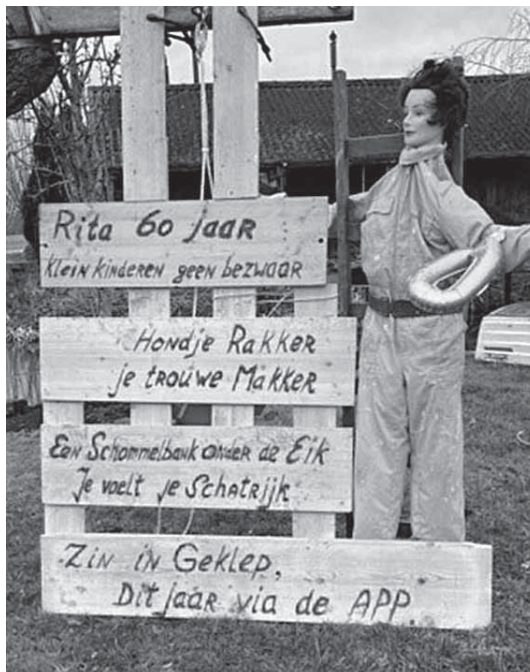 Rita 60 jaar
Kleinkinderen geen bezwaar
Hondje Rakker
je trouwe Makker
Een Schommelbank onder de Eik
Je voelt je Schatrijk
Zin in Geklep,
Dit jaar via de APP.